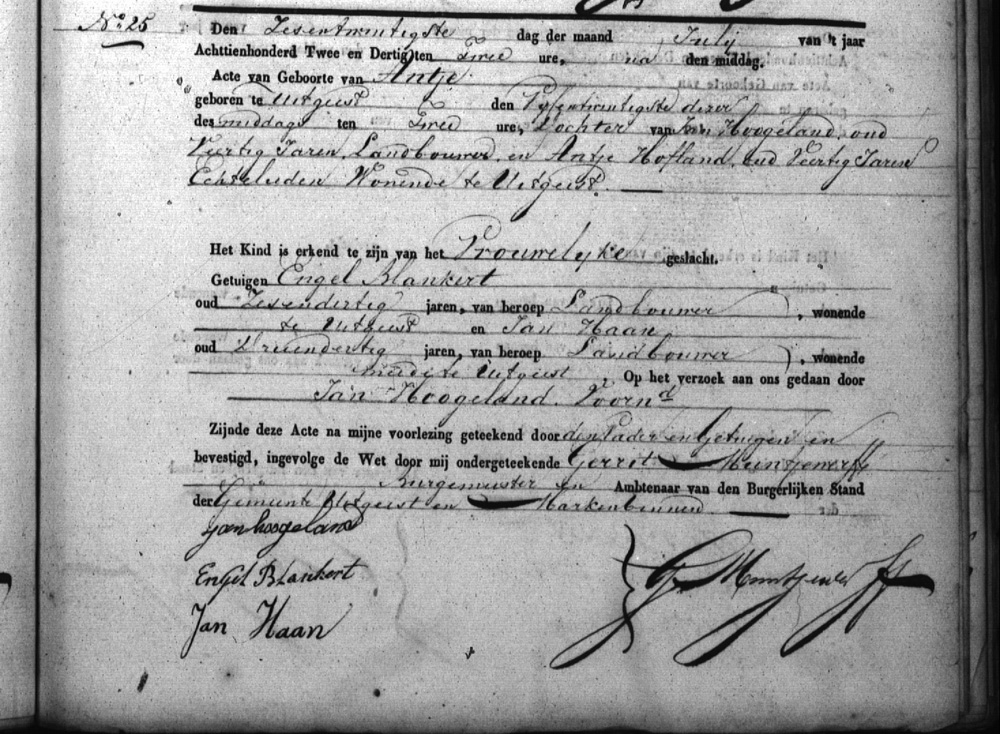 No 25
Den Zesentwintigste dag der maand Julij van 't jaar
Achttienhonderd Twee en Dertig ten Twee ure, na den middag.
Acte van Geboorte van Antje
geboren te Uitgeest den Vyfentwintigste dezer
des middags ten Twee ure, Dochter van Jan Hoogeland, oud
Veertig Jaren, Landbouwer, en Antje Hofland, oud Veertig Jaren
Echtelieden Wonende te Uitgeest.
Het Kind is erkend te zijn van het Vrouwelyke geslacht.
Getuigen Engel Blankert
oud Zesendertig jaren, van beroep Landbouwer, wonende
te Uitgeest en Jan Haan
oud Drieendertig jaren, van beroep Landbouwer, wonende
mede te Uitgeest, Op het verzoek aan ons gedaan door
Jan Hoogeland. Voornd
Zijnde deze Acte na mijne voorlezing geteekend door den Vader en Getuigen en
bevestigd, ingevolge de Wet door mij ondergeteekende Gerrit Muntjewerff
Burgemeester en Ambtenaar van den Burgerlijken Stand
der Gemeente Uitgeest en Markenbinnen
Jan hoogeland
Engel Blankert
Jan Haan
G. Muntjewerff